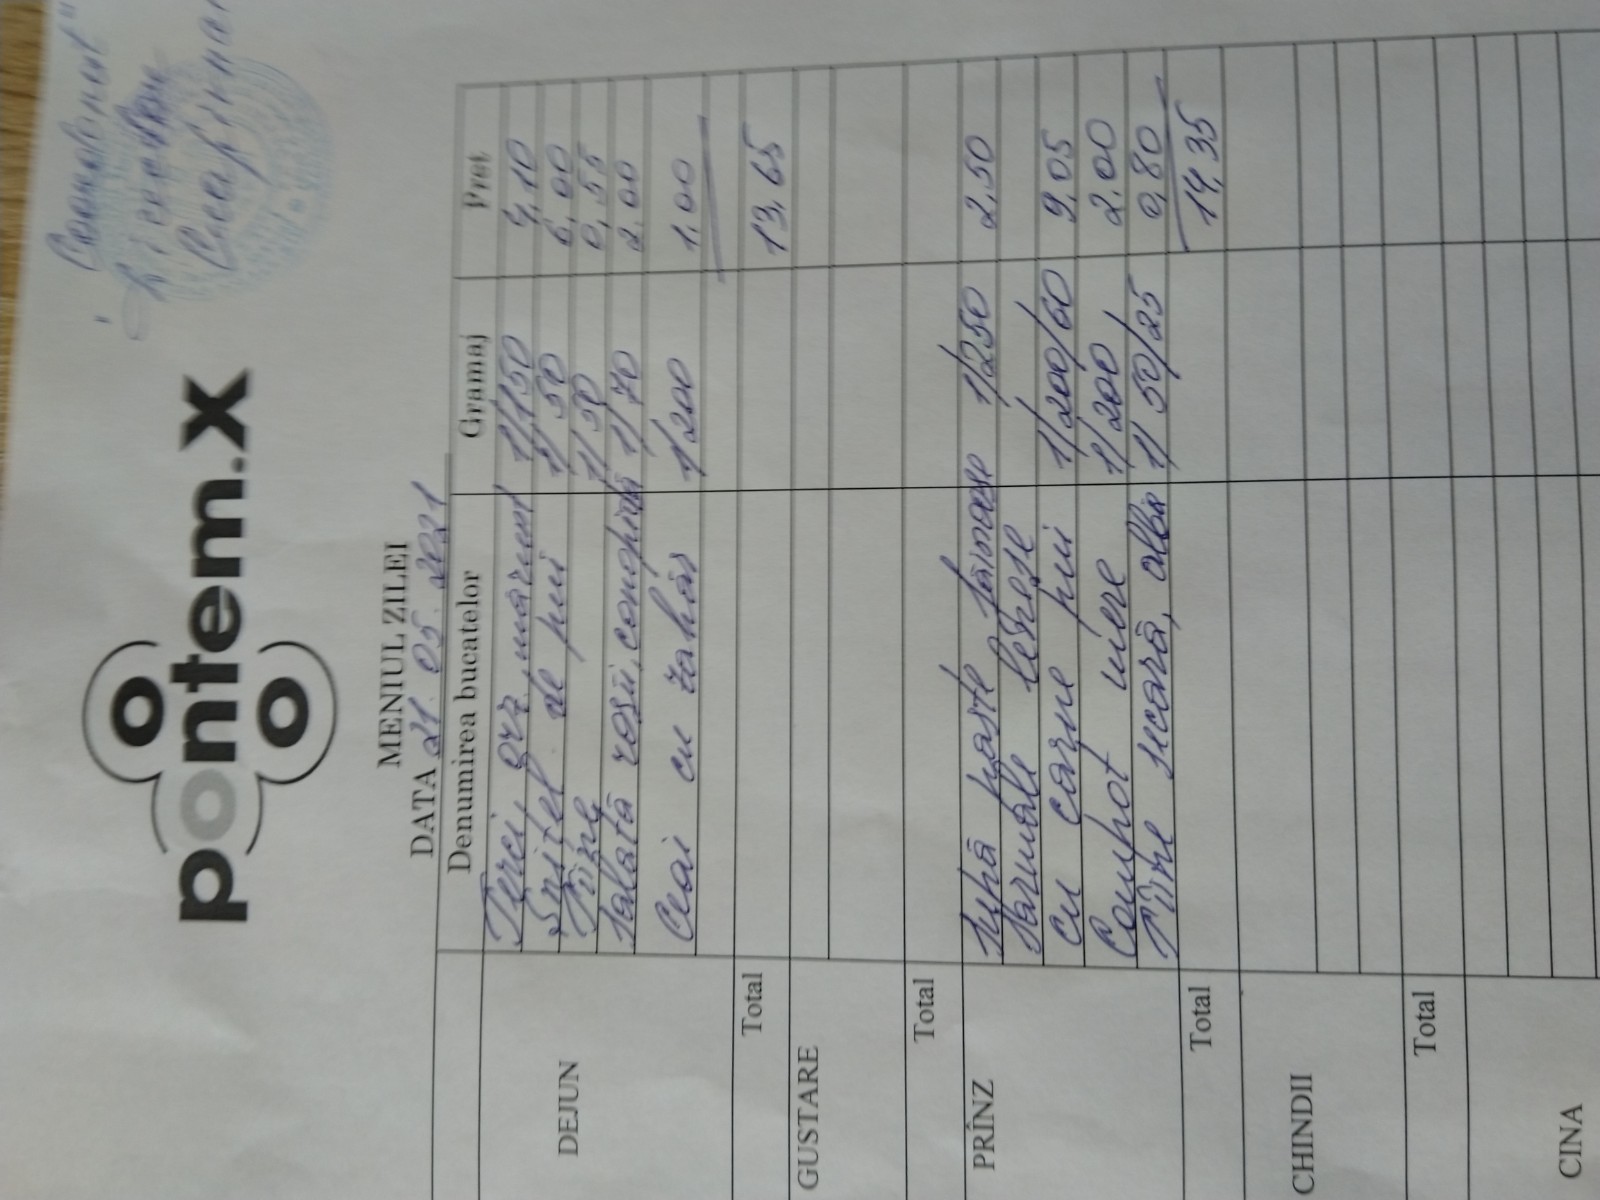 pontem.x
MENIUL ZILEI
DATA 21.05.2021
Denumirea bucatelor Gramaj Preț
DEJUN
Terci orz, mărunt 1/150 4,10
Șnițel de pui 1/50 6,00
Pîine 1/30 0,55
Salată roșii, conopidă 1/70 2.00
Ceai cu zahăr 1/200 1,00
Total 13,65
GUSTARE
Total
PRÎNZ
Supă paste făinoase 1/250 2,50
Sarmale leneșe
cu carne pui 1/200/60 9,05
Compot mere 1/200 2.00
Pîine secară, albă 1/50/25 0,80
Total 14,35
CHINDII
Total
CINA